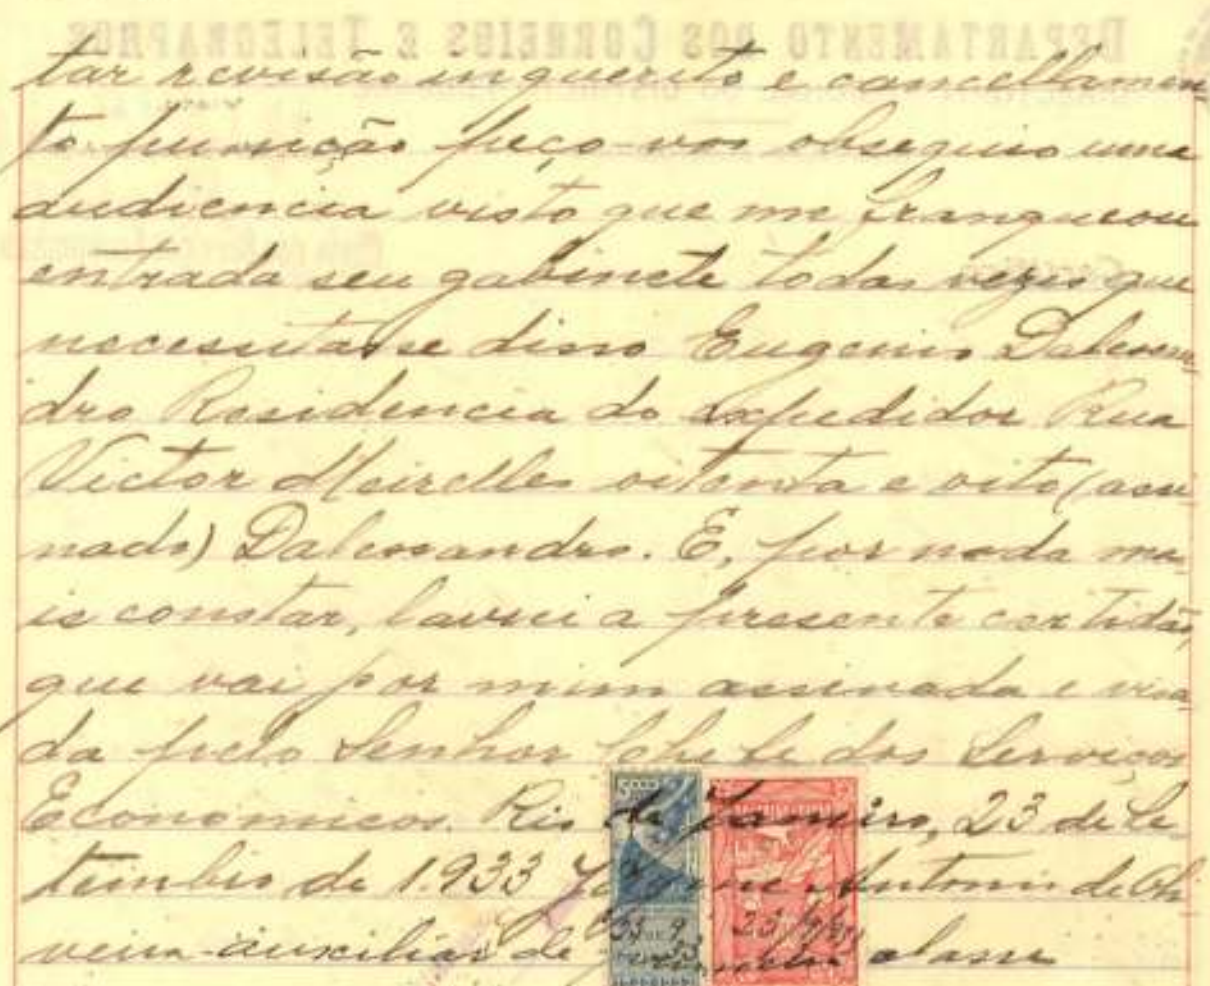 DEPARTAMENTO DOS CORREIOS E TELEGRAPHOS
tar revisão inquerito e cancellamen-
to punição peço-vos obsequio uma
audiencia visto que me franqueou
entrada seu gabinete todas vezes que
necessitasse disso Eugenio Dalessan-
dro Residencia do expedidor Rua
Victor Meirelles oitenta e oito (assi-
nado) Dalessandro. E, por nada ma-
is constar, lavrei a presente certidão,
que vai por mim assinada e visa-
da pelo Senhor Chefe dos Serviços
Economicos. Rio de Janeiro, 23 de Se-
tembro de 1.933 Antonio de Oli-
veira - auxiliar de classe
23/9/933